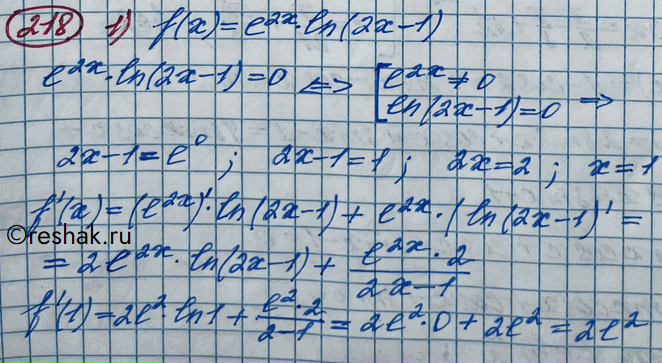 218 1) f(x)=e^{2x}·ln(2x-1)
e^{2x}·ln(2x-1)=0 <=> [e^{2x}≠0
ln(2x-1)=0 =>
2x-1=e^0; 2x-1=1; 2x=2; x=1
f'(x)=(e^{2x})'·ln(2x-1)+e^{2x}·(ln(2x-1)'=
©reshak.ru
=2e^{2x}·ln(2x-1)+\frac{e^{2x}·2}{2x-1}
f'(1)=2e^2·ln1+\frac{e^2·2}{2-1}=2e^2·0+2e^2=2e^2